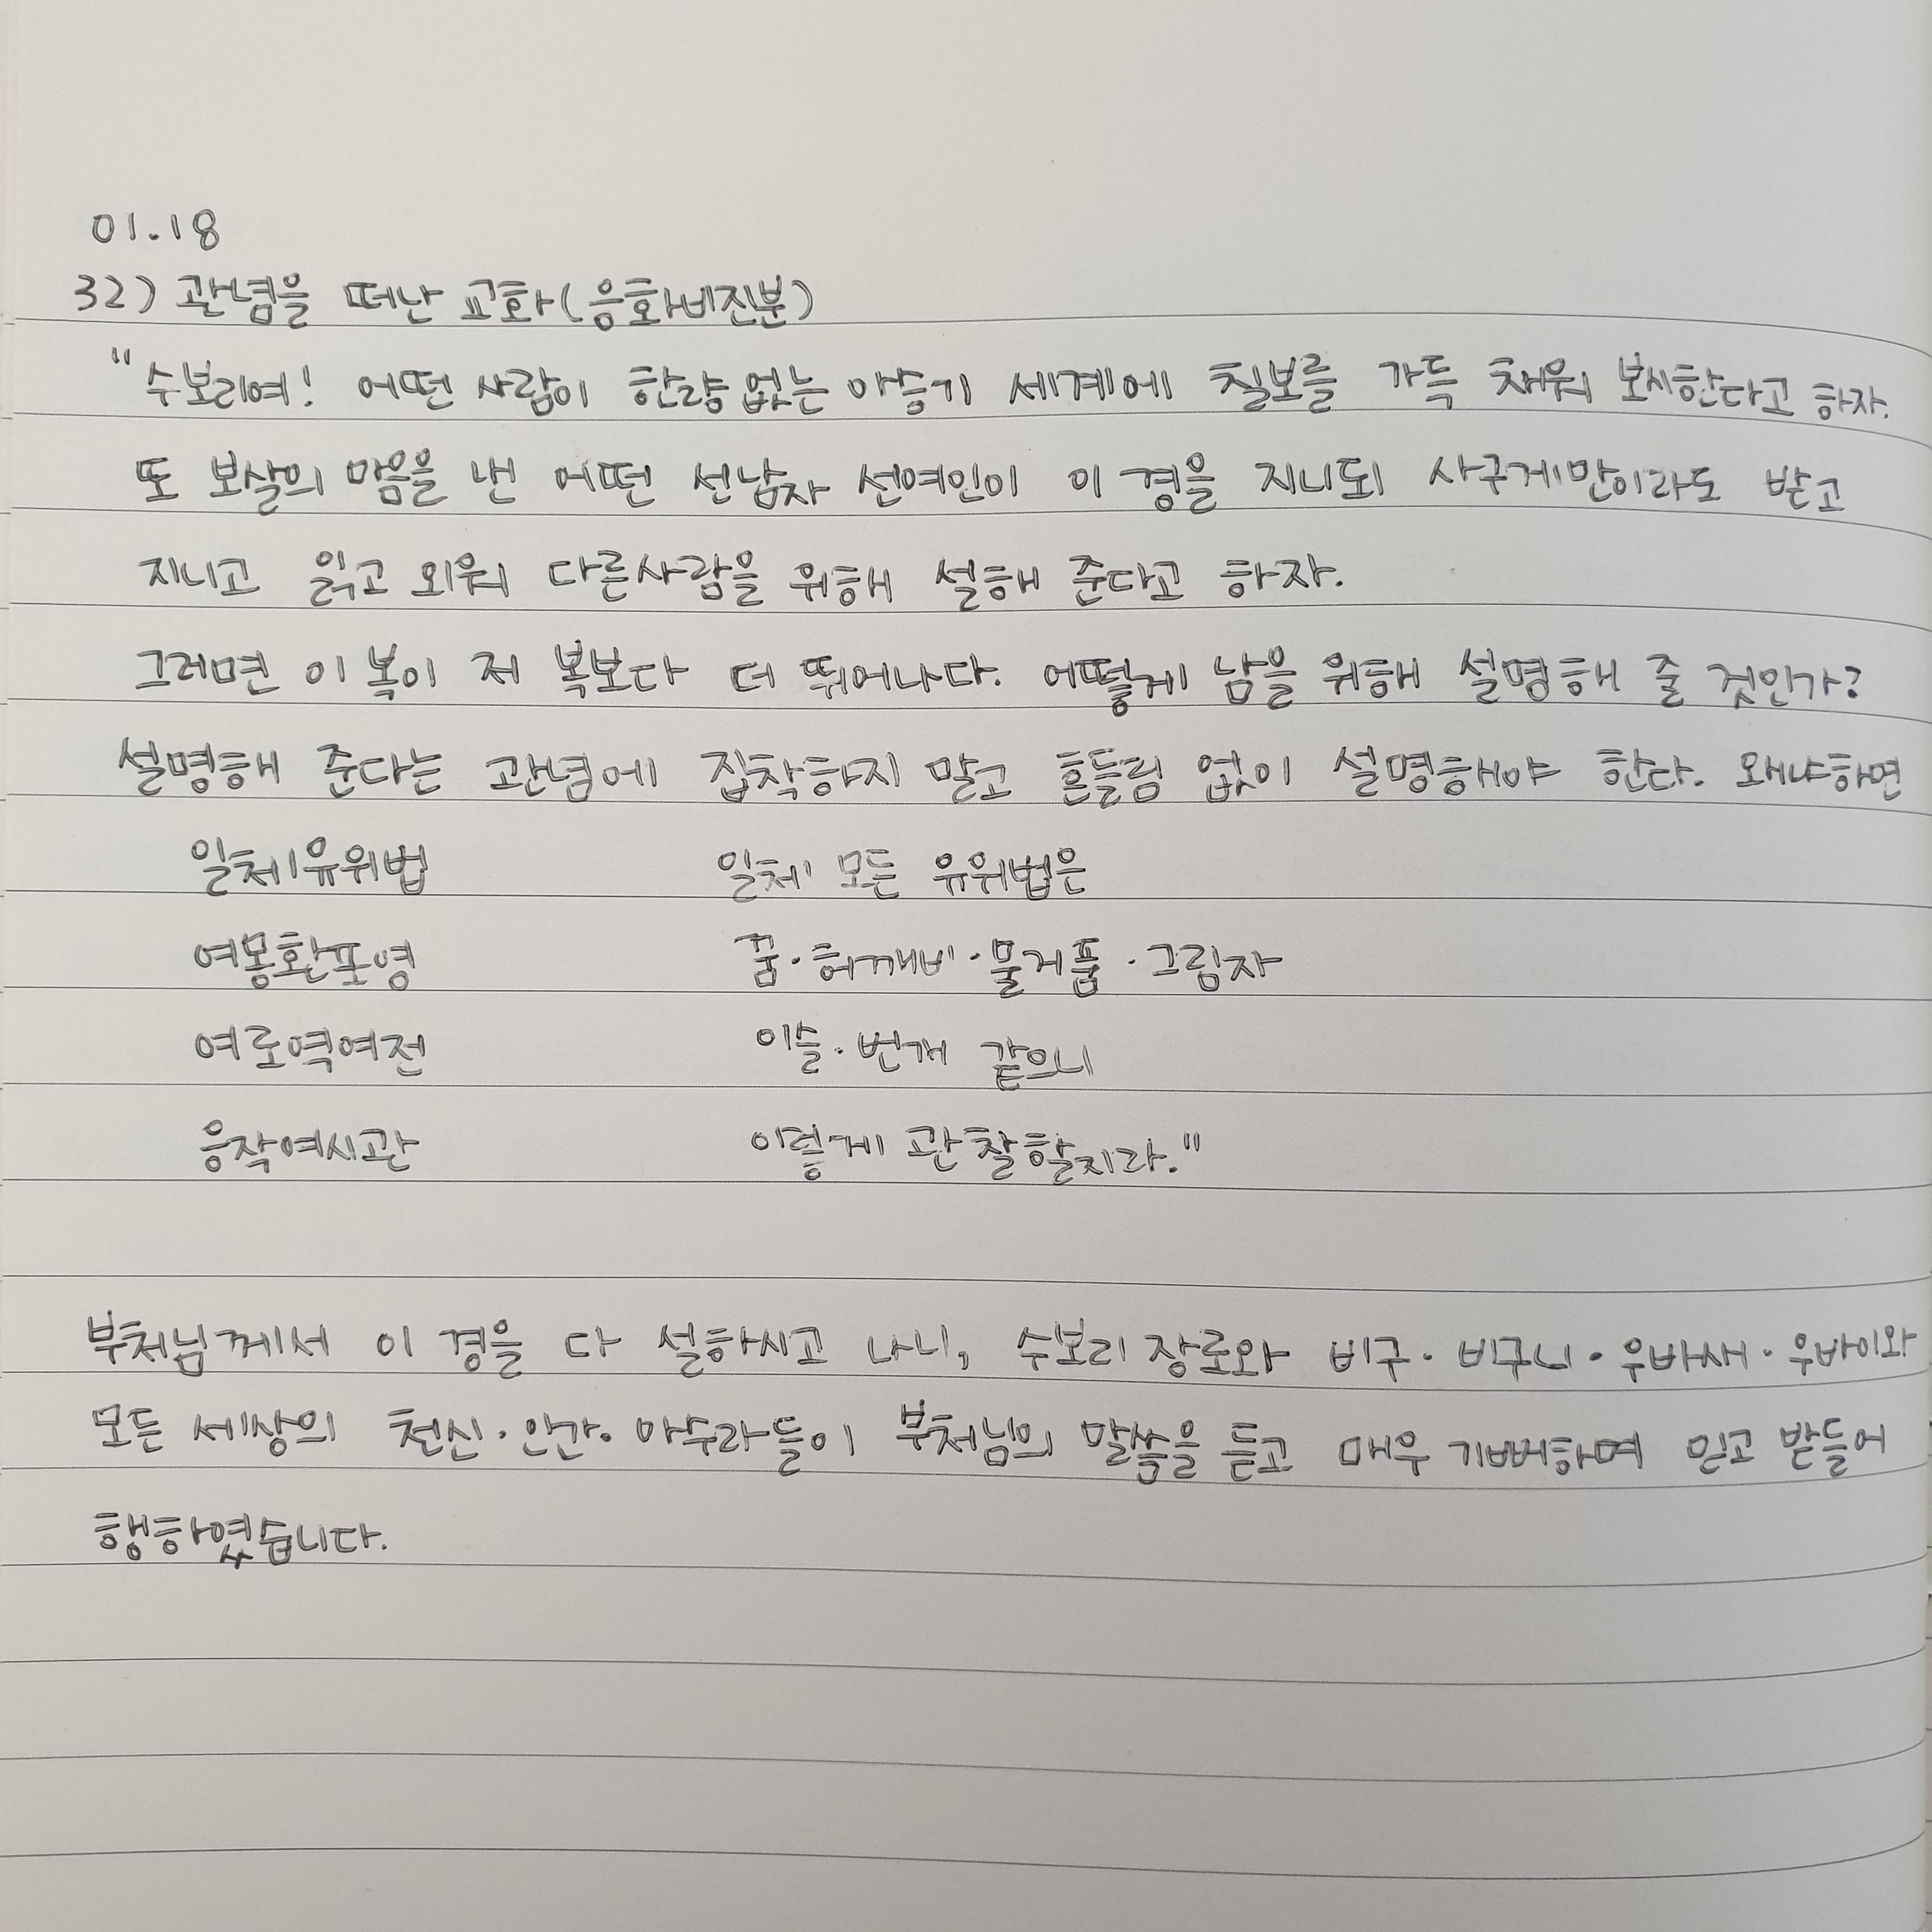 01.18
32) 관념을 떠난 교화(응화비진분)
"수보리여! 어떤 사람이 한량없는 아승기 세계에 칠보를 가득 채워 보시한다고 하자.
또 보살의 마음을 낸 어떤 선남자 선여인이 이 경을 지니되 사구게만이라도 받고
지니고 읽고 외워 다른사람을 위해 설해 준다고 하자.
그러면 이 복이 저 복보다 더 뛰어나다. 어떻게 남을 위해 설명해 줄 것인가?
설명해 준다는 관념에 집착하지 말고 흔들림 없이 설명해야 한다. 왜냐하면
일체유위법 일체 모든 유위법은
여몽환포영 꿈·허깨비·물거품·그림자
여로역여전 이슬·번개 같으니
응작여시관 이렇게 관찰할지라."
부처님께서 이 경을 다 설하시고 나니, 수보리 장로와 비구·비구니·우바새·우바이와
모든 세상의 천신·인간·아수라들이 부처님의 말씀을 듣고 매우 기뻐하며 믿고 받들어
행하였습니다.